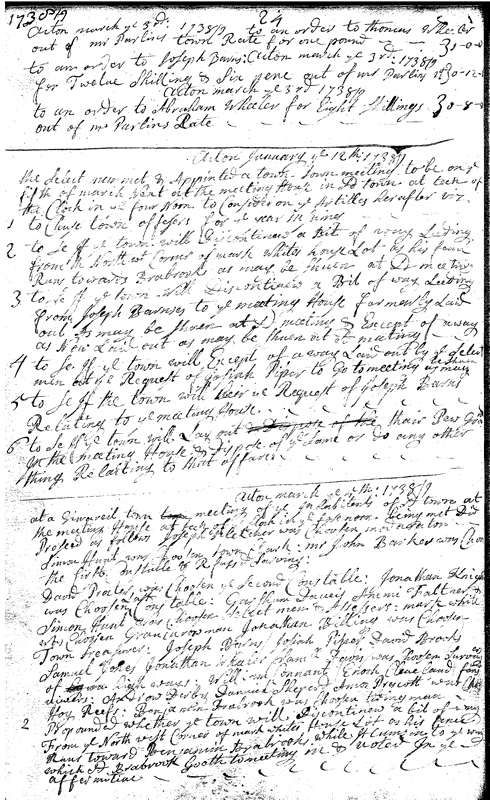 1738/9 24
Acton march ye 3rd: 1738/9 to an order to thomas Wheeler
out of mr Parlins town Rate for one pound 30-0-0
to an order to Joseph Barns: Acton march ye 3rd: 1738/9
for Twelve Shilling & Six pene out of mr Parlins Rt 30-12-
Acton march ye 3rd 1738/9
to an order to Abraham Wheeler for Eight Shillings 30-8-0
out of mr Parlins Rate
Acton January ye 12th: 1738/9
the Select men met & Appointed a town Town meeting to be on ye
of march Next at the meeting House in sd town at
the Clock in ye four Noon to Consider on ye Artilles her after viz
1 to Chuse town offesers for ye year in suing
2 to Se if ye town will Discontinew a Bit of way Leding
from the North wt Corner of mark Whits house Lot as his fence
Runs towards Brabrook as may be shuen at sd meeting
3 to se if ye town will Discontinew a Bit of way Leeding
from Joseph Barnses to ye meeting House formerly Laid
out As may be shuen at sd meeting & Except of a way
as New Laid out as may be shuen at meeting
4 to Se if ye town will Except of a way Laid out by ye Select
men att ye Request of Josiah Piper to Go to meeting
5 to Se if the town will Hear ye Request of Joseph Barns
Relating to ye meeting House
6 to Se if ye town will Lay out thair Pew Gro
in the meeting House & Dispose of ye Same or do any other
thing Relasting to that affaire
Acton march ye 1738/9
at a Ginureil town meeting of ye Inhabitents of sd town at
the meeting House at of ye Clock in ye for noon being met Did
Prosed as follows Joseph Fletcher was Choosen moderator
Simon Hunt was Choosen town Clark: mr John Barker was Choo
the first Constable & Refused Serving:
David Proler was Choosen ye Second Constable: Jonathan Knigh
was Choosen Constable: Garshum Daveis
Simon Hunt was Choosen Select men & Assesers: mark white
was Choosen Granjurorman Jonathan Billing was Choosen
Town Treasurer: Joseph Barns Josiah Piper David Brook
Samuel Jonathan Whealer Saml Davis was Chosen Survey
of high ways: Will Connant Enoch Cleaveland fens
viwers: Andrew Derby Danniel Sheperd Amos Prescott were Ch
Hog Refs: Benjamin Brabrook was Chosen tithing man
2 Propounded whether ye town will Discontinew a bit of way
From ye North west Corner of mark whites House Lot as his fence
Runs toward Benjamin Brabrooks while it Cums in to ye way
which sd Brabrook Goeth to meeting in & Voted in ye
affermitive